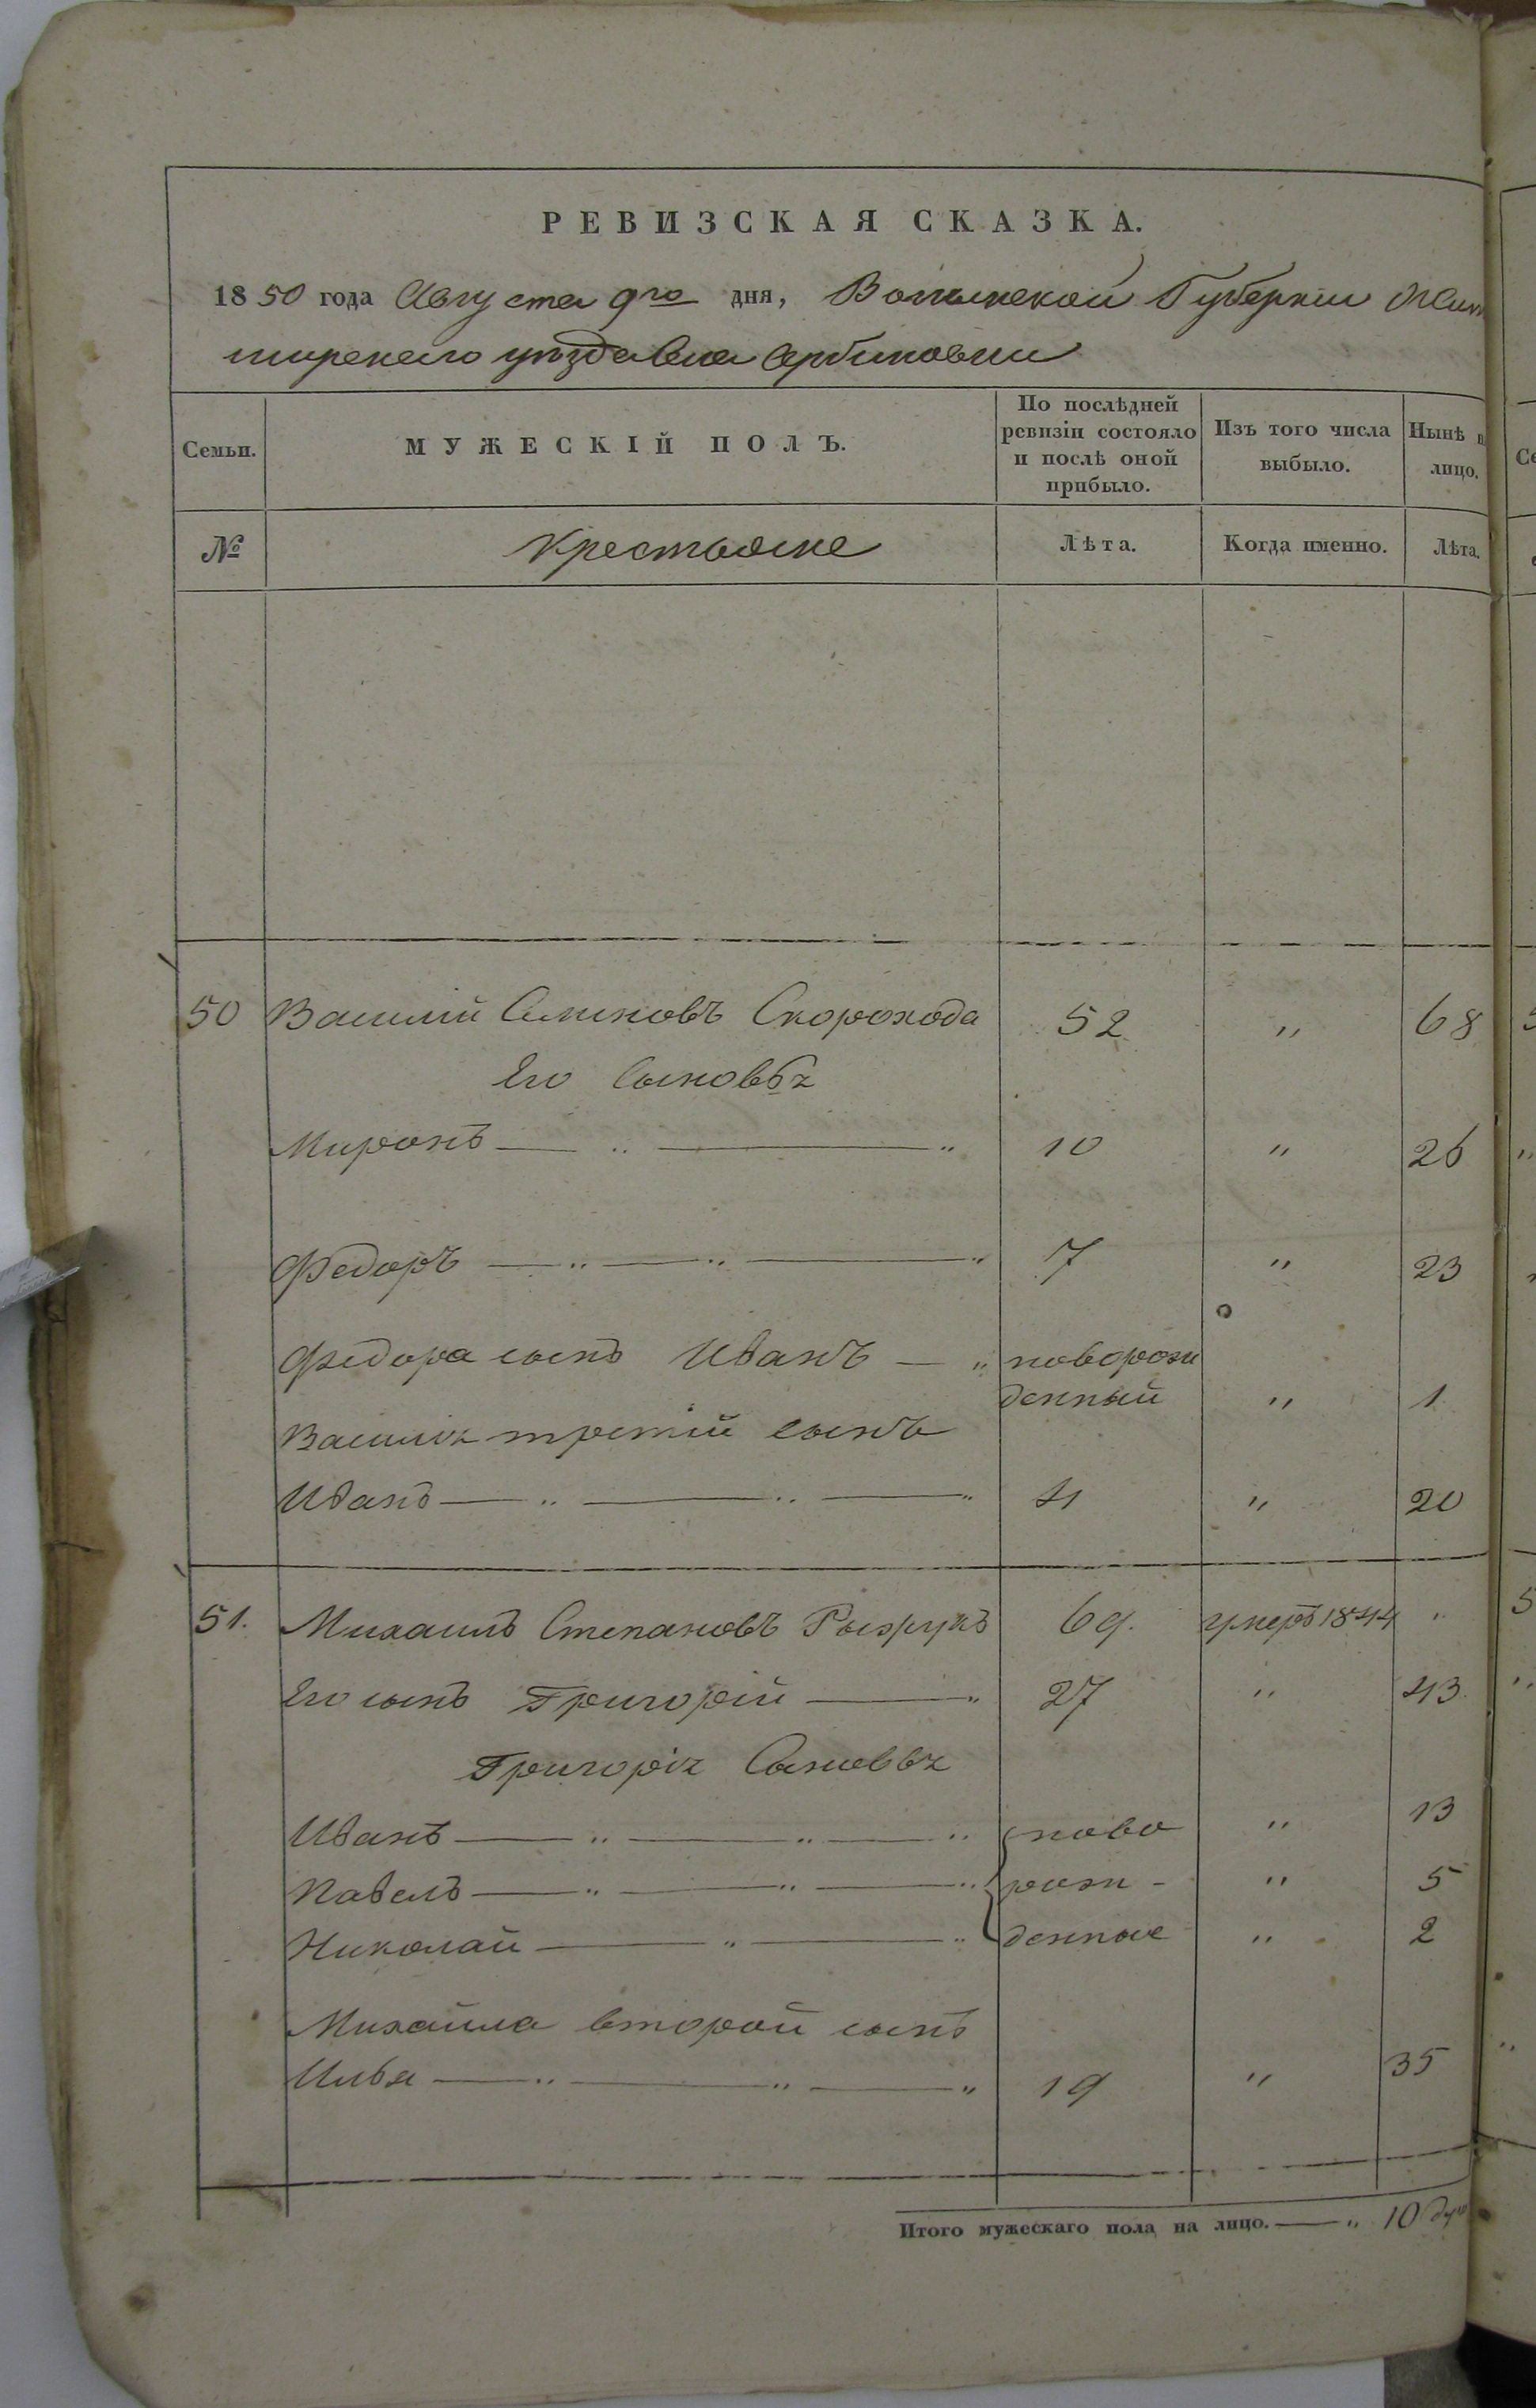 РЕВИЗСКАЯ СКАЗКА.
1850 года Августа 9го дня, Волынской Губернии Жито
мирскаго уѣзда села
Семьи. МУЖЕСКІЙ ПОЛЪ. По послѣдней ревизіи состояло и послѣ оной прибыло. Изъ того числа выбыло. Нынѣ на лицо.
№ Крестьяне Лѣта. Когда именно. Лѣта.
50 Василий Семеновъ Скорохода 52 „ 68
Его Сыновья
Миронъ — „ — „ 10 „ 26
Федоръ — „ — „ — „ 7 „ 23
Федора сынъ Иванъ — „ новорож
денный „ 1
Василия третій сынъ
Иванъ — „ — „ — „ 4 „ 20
51. Михаилъ Степановъ 69. умеръ 1844 „
Его сынъ Григорій — „ 27 „ 43
Григорія Сыновья
Иванъ — „ — „ — „ ново „ 13
Павелъ — „ — „ — „ рож- „ 5
Николай — „ — „ денные „ 2
Михайла второй сынъ
Илья — „ — „ — „ 19 „ 35
Итого мужескаго пола на лицо. — „ 10 душ